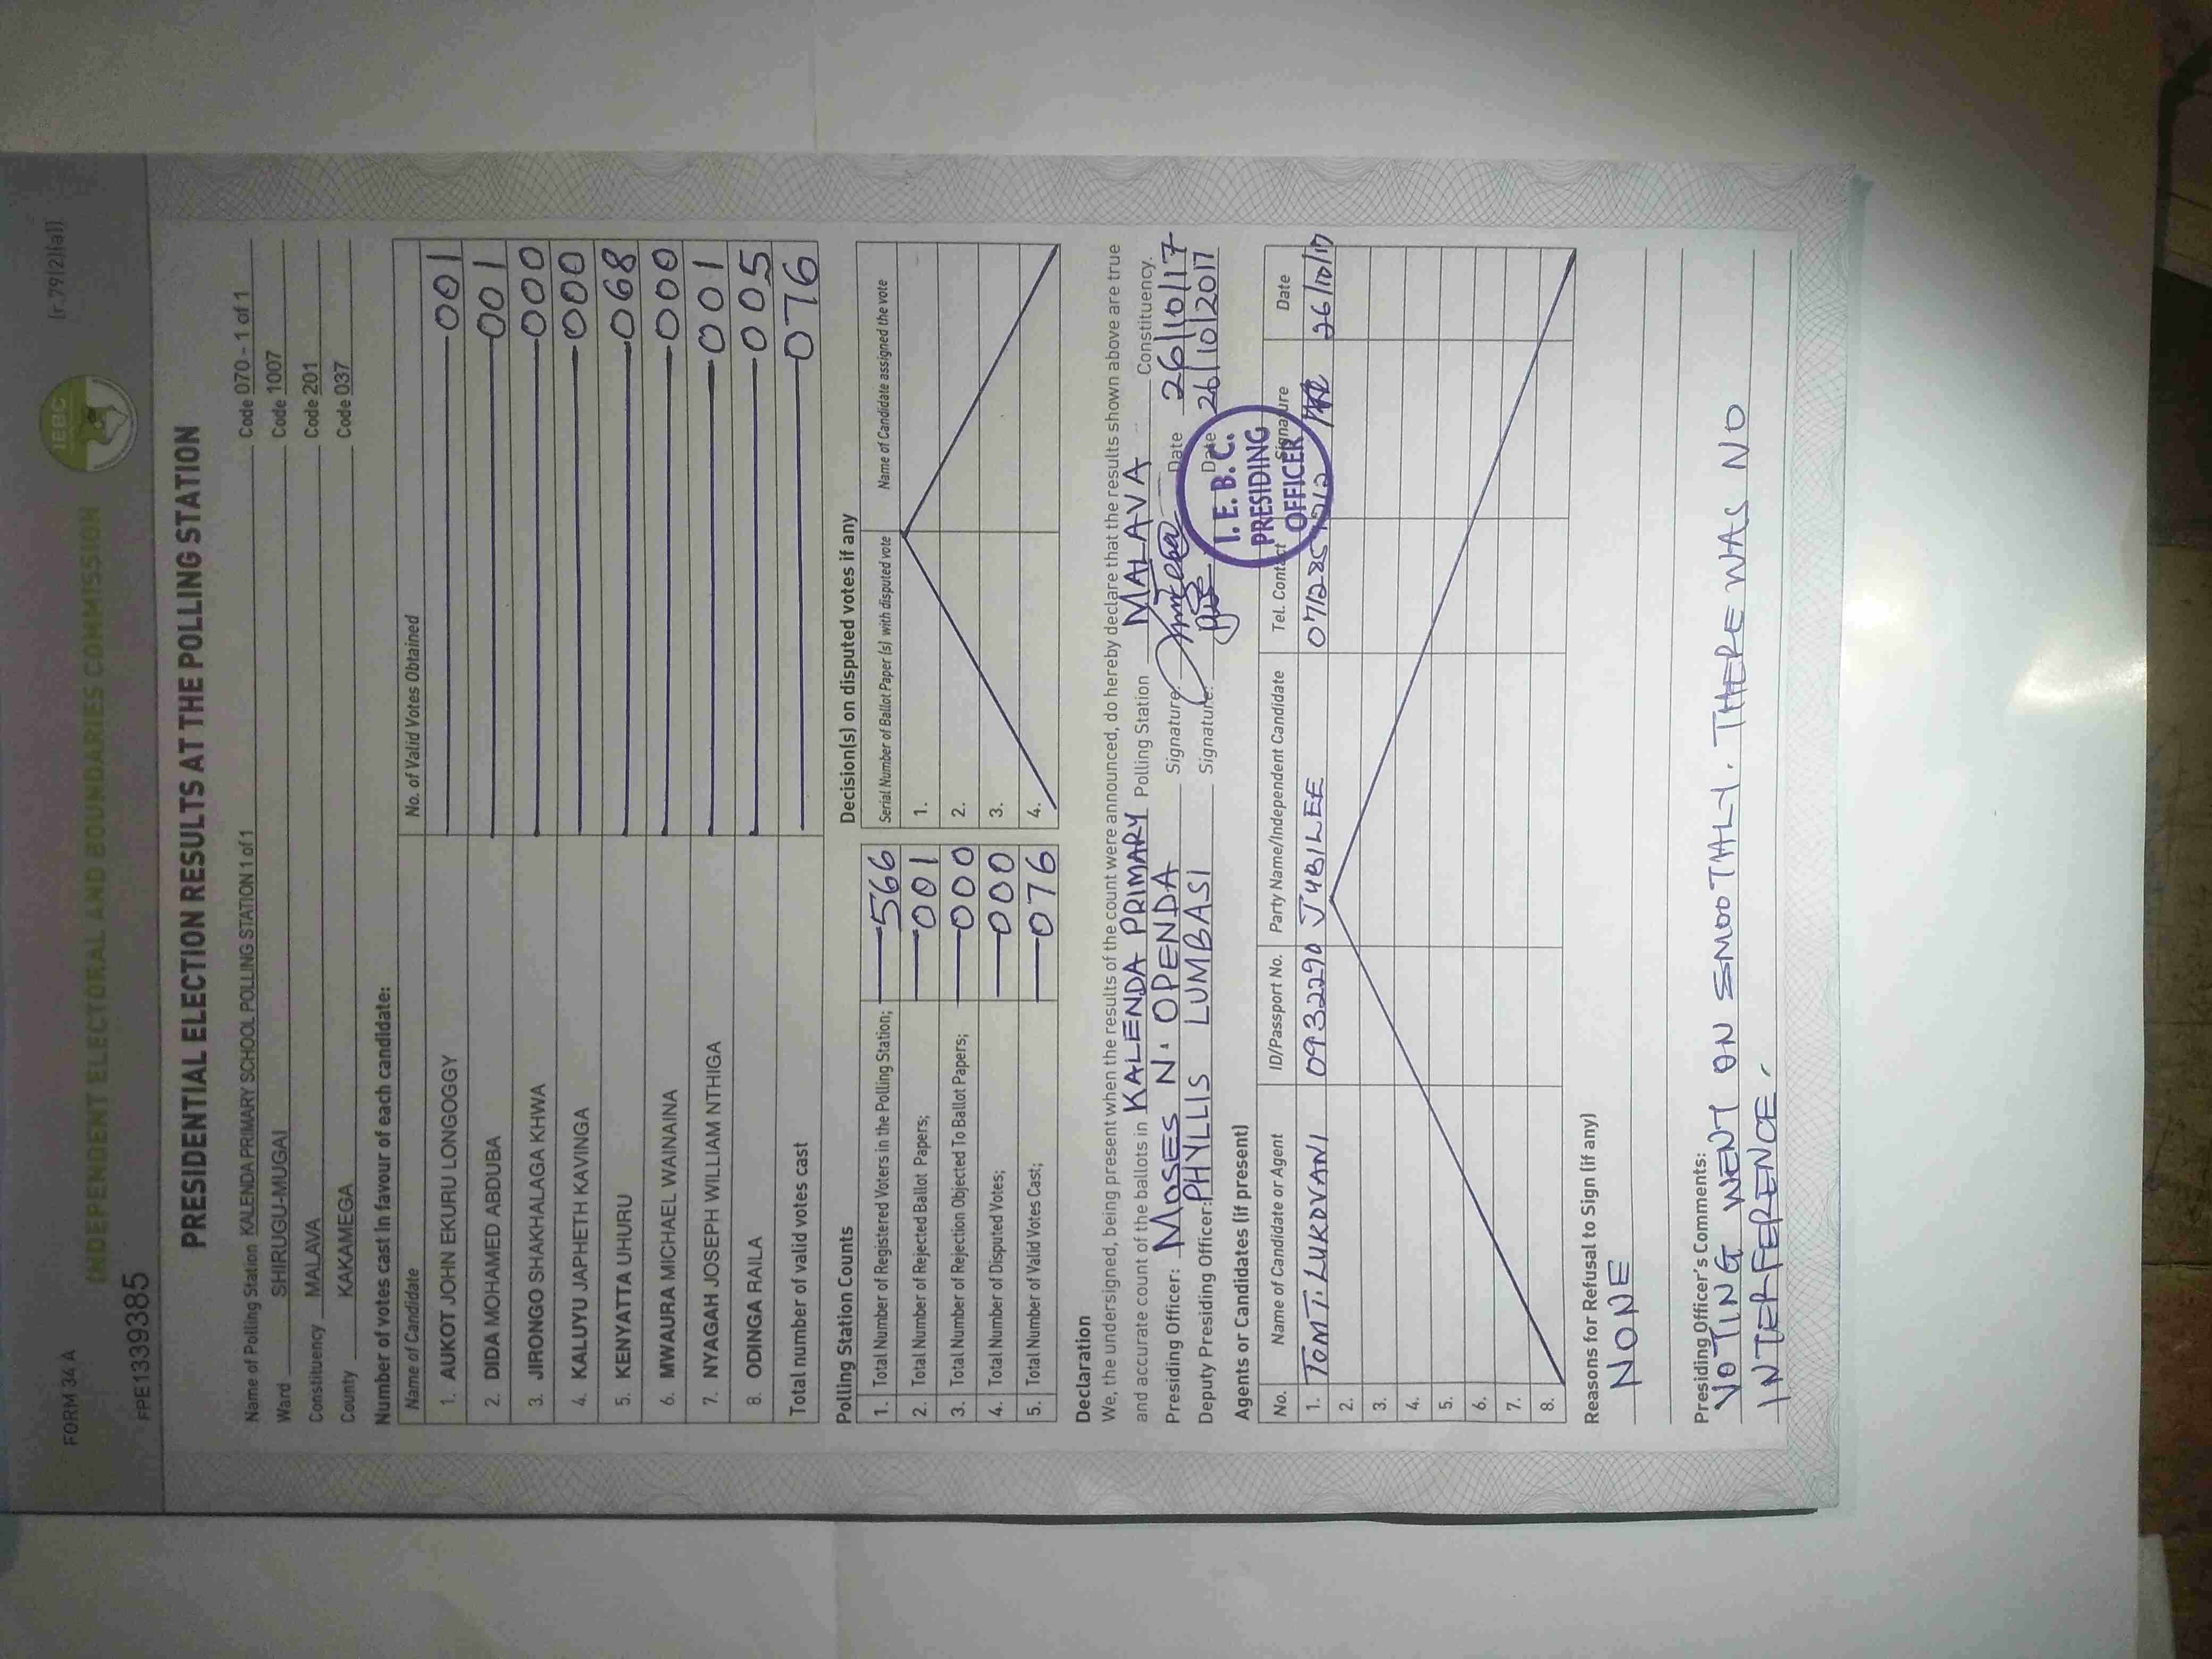 FORM 34 A
[r.79(2)(a)]
IEBC
INDEPENDENT ELECTORAL AND BOUNDARIES COMMISSION
FPE1339385
PRESIDENTIAL ELECTION RESULTS AT THE POLLING STATION
Name of Polling Station KALENDA PRIMARY SCHOOL POLLING STATION 1 of 1 Code 070 - 1 of 1
Ward SHIRUGU-MUGAI Code 1007
Constituency MALAVA Code 201
County KAKAMEGA Code 037
Number of votes cast in favour of each candidate:
Name of Candidate No. of Valid Votes Obtained
1. AUKOT JOHN EKURU LONGOGGY 001
2. DIDA MOHAMED ABDUBA 001
3. JIRONGO SHAKHALAGA KHWA 000
4. KALUYU JAPHETH KAVINGA 000
5. KENYATTA UHURU 068
6. MWAURA MICHAEL WAINAINA 000
7. NYAGAH JOSEPH WILLIAM NTHIGA 001
8. ODINGA RAILA 005
Total number of valid votes cast 076
Polling Station Counts
1. Total Number of Registered Voters in the Polling Station; 566
2. Total Number of Rejected Ballot Papers; 001
3. Total Number of Rejection Objected To Ballot Papers; 000
4. Total Number of Disputed Votes; 000
5. Total Number of Valid Votes Cast; 076
Decision(s) on disputed votes if any
Serial Number of Ballot Paper (s) with disputed vote Name of Candidate assigned the vote
1.
2.
3.
4.
Declaration
We, the undersigned, being present when the results of the count were announced, do hereby declare that the results shown above are true
and accurate count of the ballots in KALENDA PRIMARY Polling Station MALAVA Constituency.
Presiding Officer: MOSES N. OPENDA Signature: Date 26/10/17
Deputy Presiding Officer: PHYLLIS LUMBASI Signature: Date 26/10/2017
I.E.B.C.
PRESIDING
OFFICER
Agents or Candidates (if present)
No. Name of Candidate or Agent ID/Passport No. Party Name/Independent Candidate Tel. Contact Signature Date
1. TOM T. LUKOVANI 09322290 JUBILEE 26/10/17
2.
3.
4.
5.
6.
7.
8.
Reasons for Refusal to Sign (if any)
NONE
Presiding Officer's Comments:
VOTING WENT ON SMOOTHLY. THERE WAS NO
INTERFERENCE.